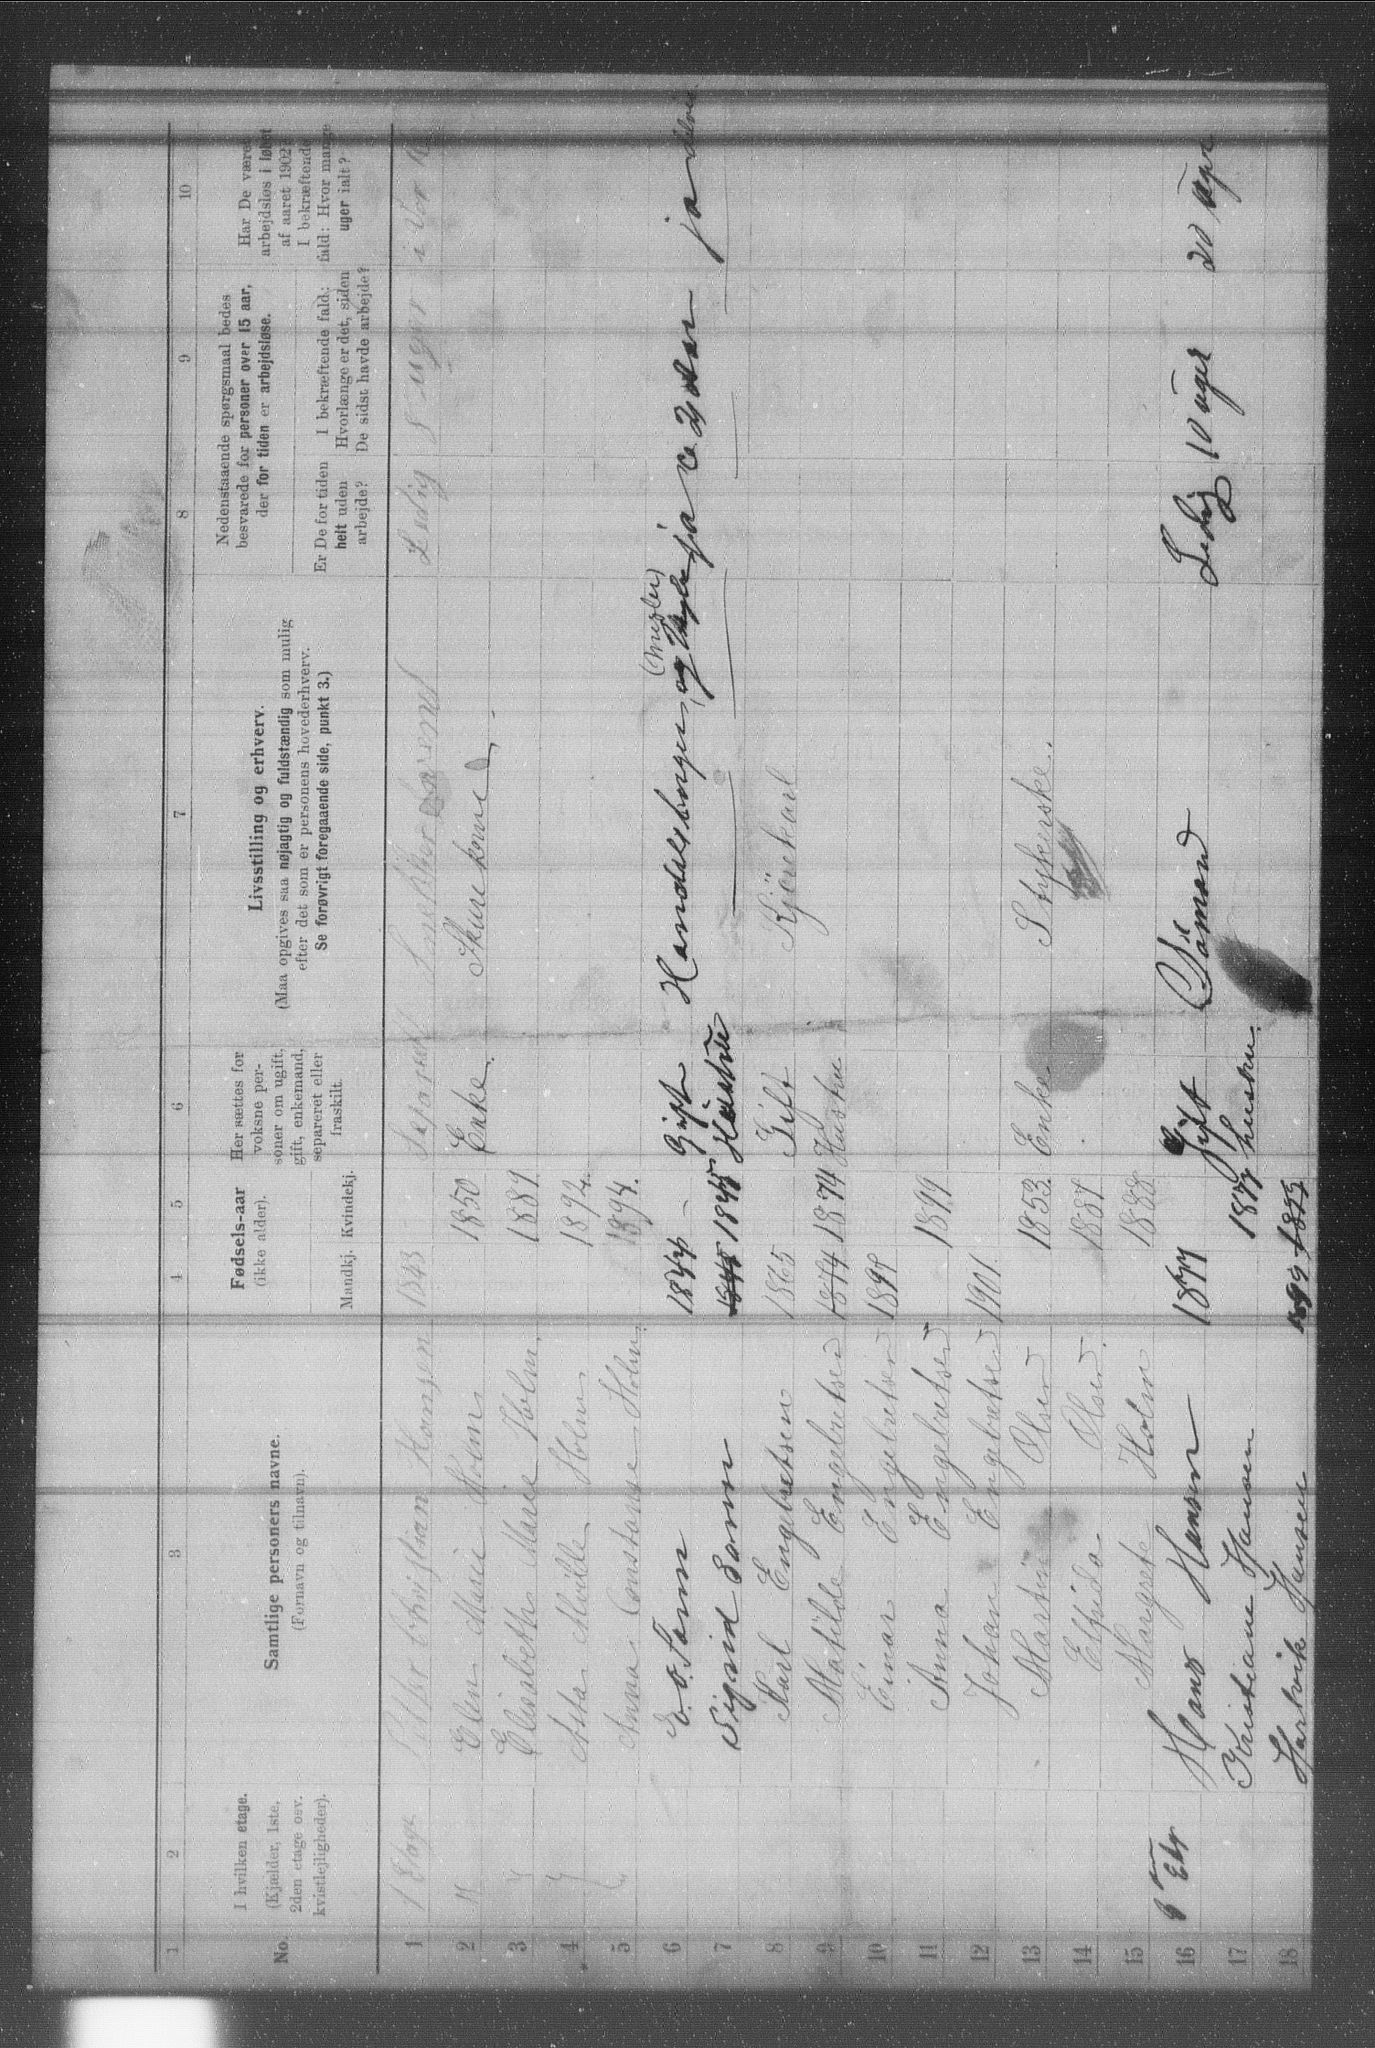 1 2 3 4 5 6 7 8 9 10
No.
I hvilken etage.
(Kjælder, 1ste,
2den etage osv.
kvistlejligheder).
Samtlige personers navne.
(Fornavn og tilnavn).
Fødsels-aar
(ikke alder).
Mandkj. Kvindekj.
Her sættes for
voksne per-
soner om ugift,
gift, enkemand,
separeret eller
fraskilt.
Livsstilling og erhverv.
(Maa opgives saa nøjagtig og fuldstændig som mulig
efter det som er personens hovederhverv.
Se forøvrigt foregaaende side, punkt 3.)
Nedenstaaende spørgsmaal bedes
besvarede for personer over 15 aar,
der for tiden er arbejdsløse.
Er De for tiden
helt uden
arbejde?
I bekræftende fald:
Hvorlænge er det, siden
De sidst havde arbejde?
Har De været
arbejdsløs i løbet
af aaret 1902?
I bekræftende
fald: Hvor mange
uger ialt?
1 1 Etage Christian Hansen 1843 Ledig 8 uger
2 Elen Marie Holm 1850 Enke Skurekone
3 Elisabeth Marie Holm. 1887.
4 Asta Holm 1892.
5 Anna Constanse Holm. 1894.
6 E. O. 1844 Gift (Megler) ja ca ja
7 Sigrid 1845 Hustru
8 Karl Engebretsen 1865 Gift Kjørekarl
9 Matilde Engebretsen 1874 1874 Hustru
10 Einar Engebretsen
11 Anna Engebretsen 1899
12 Johan Engebretsen 1901.
13 Martine Olsen 1853. Enke Strykerske.
14 Elfrida Olsen. 1887
15 Margrete Holm 1888
16 Etg Hans Hansen 1877 Gift Sømand Ledig 10 uger 20 uger
17 Kristiane Hansen 1877 hustru.
18 Hartvik Hansen 1899